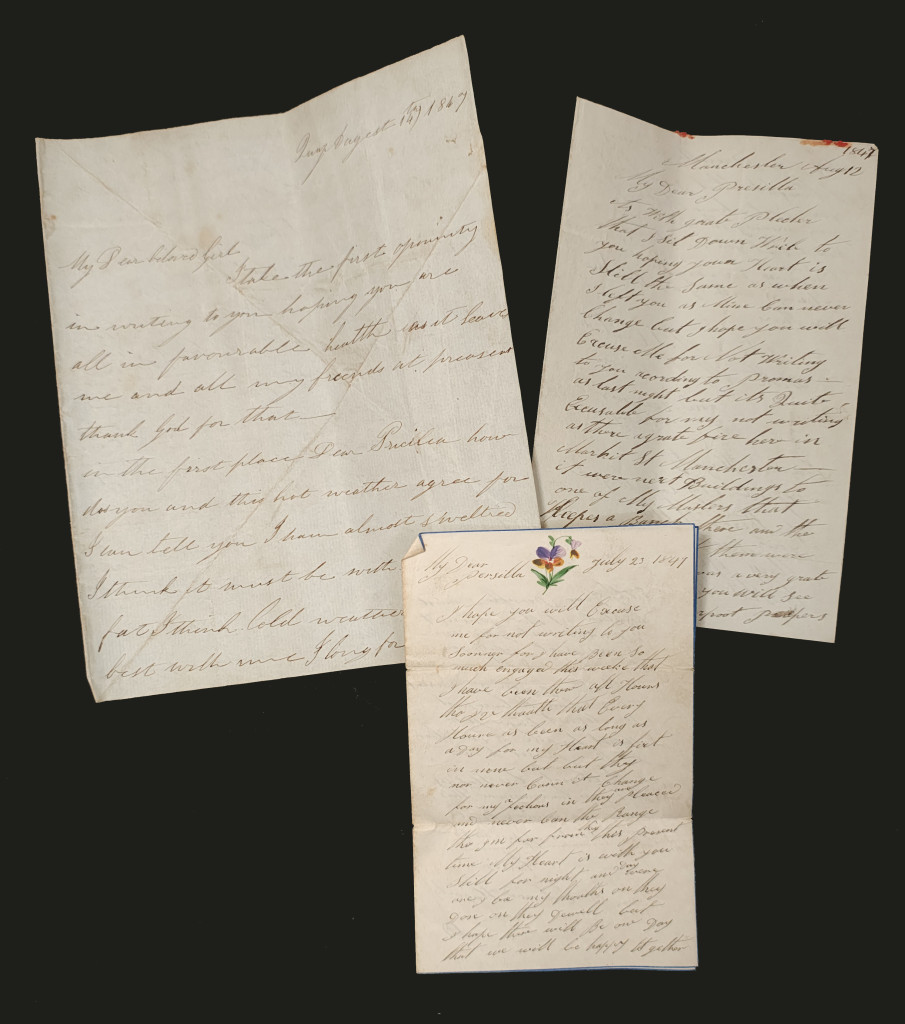 August 1847
My Dear beloved Girl
I take the first opinuity
in writing to you hoping you are
all in favourable health as it leaves
me and all my friends at preasent
thank God for that
in the first place Dear Pricilia how
do you and this hot weather agree for
I can tell you I ham almost sweltied
I think it must be with
fat I think Cold weather
best with me I long for
1847
Manchester Aug 12
My Dear Presilla
its With grate Pleder
that I Set Down Write to
you hoping your Heart is
Still the Same as when
I left you as Mine Can never
Change but I hope you will
Excuse Me for Not Writing
to you acording to promas
as last night but its Quite
Excusable for my not writing
as there a grate fire here in
Markit St Manchester
it were next Buildings to
one of My Masters that
Keepes a there and the
there were
very grate
you will see
papers
My Dear
Persilla
July 23 1847
I hope you will Excuse
me for not writing to you
Sooner for I have been So
much engaged this weeke that
I have been
that Every
Houre as been as long as
a Day for my Heart is fixt
in none but but they
nor never Change
for my in they
and never Can
this present
time My Heart is with you
Still for night and day
my thouths on they
on they Dwell but
I hope there will Be one Day
that we will be happy to gether